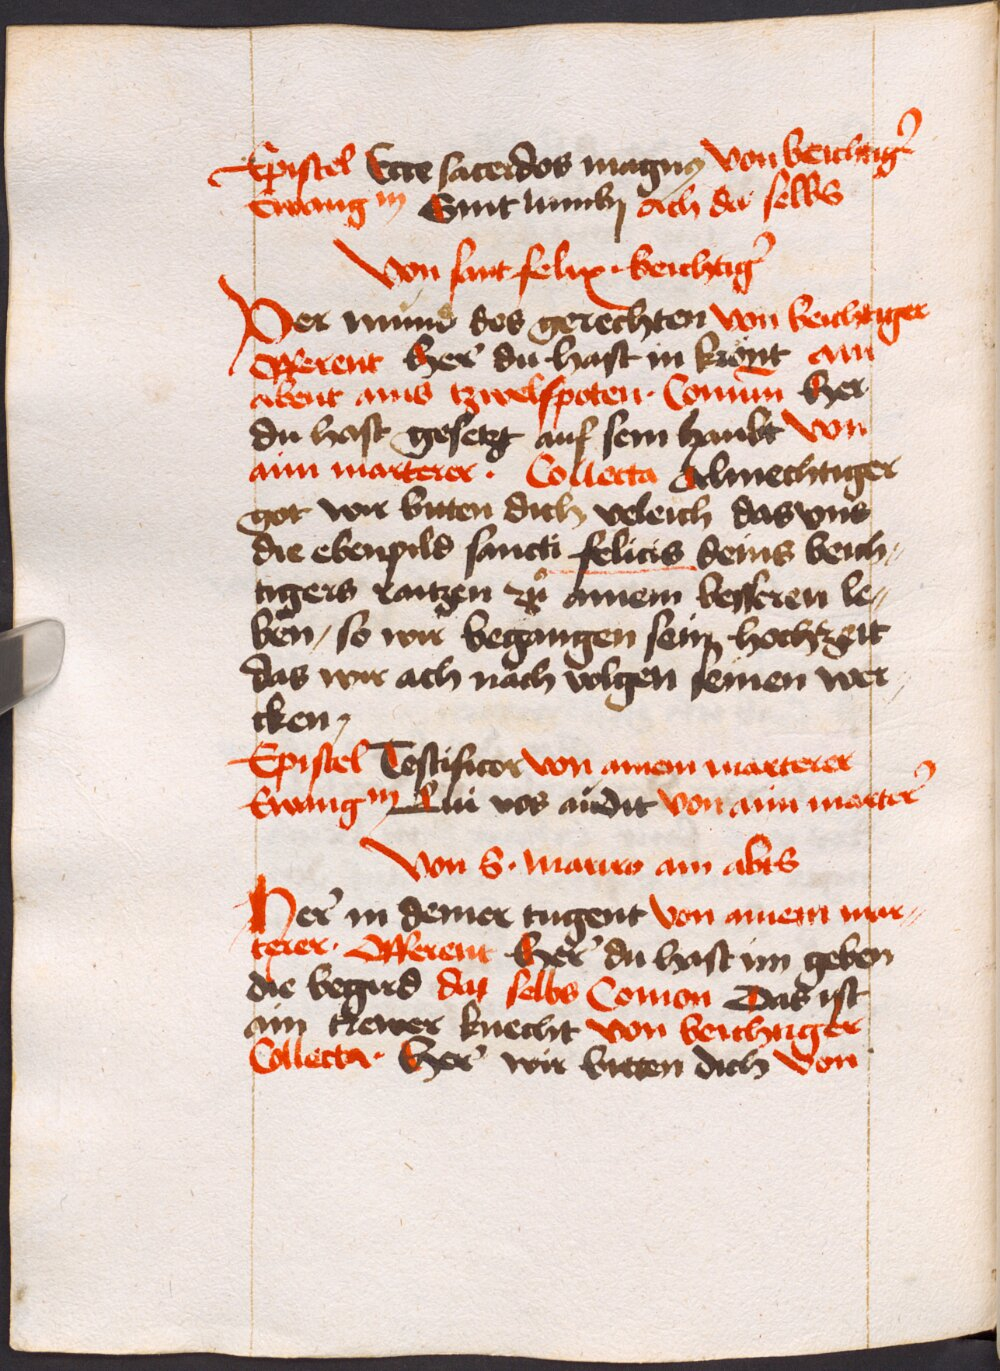 Epistel Ecce sacerdos magnus von beichtig
Ewangm Sint lumbi ach da selbs
Von sant felix beichtig
Der mund des gerechten von beichtiger
Offerent Her du hast in krönt am
abent ains tzwelfpoten. Comun Her
du hast gesetzt auf sein haubt von
aim marterer. Collecta Almechtiger
got wir bitten dich verleich das vns
die ebenpild sancti felicis deins beich
tigers raitzen zu ainem besseren le
ben / so wir begangen sein hochzeit
das wir ach nach volgen seinen wer
cken
Epistel Testificor von ainem marterer
Ewangm Qui vos audit von aim marter
Von S. Mauro aim abts
Her in deiner tugent von ainem mar
terer. Offerent Her du hast im geben
die begird da selbs Comon Das ist
ain trewer knecht von beichtiger
Collecta. Her wir bitten dich von